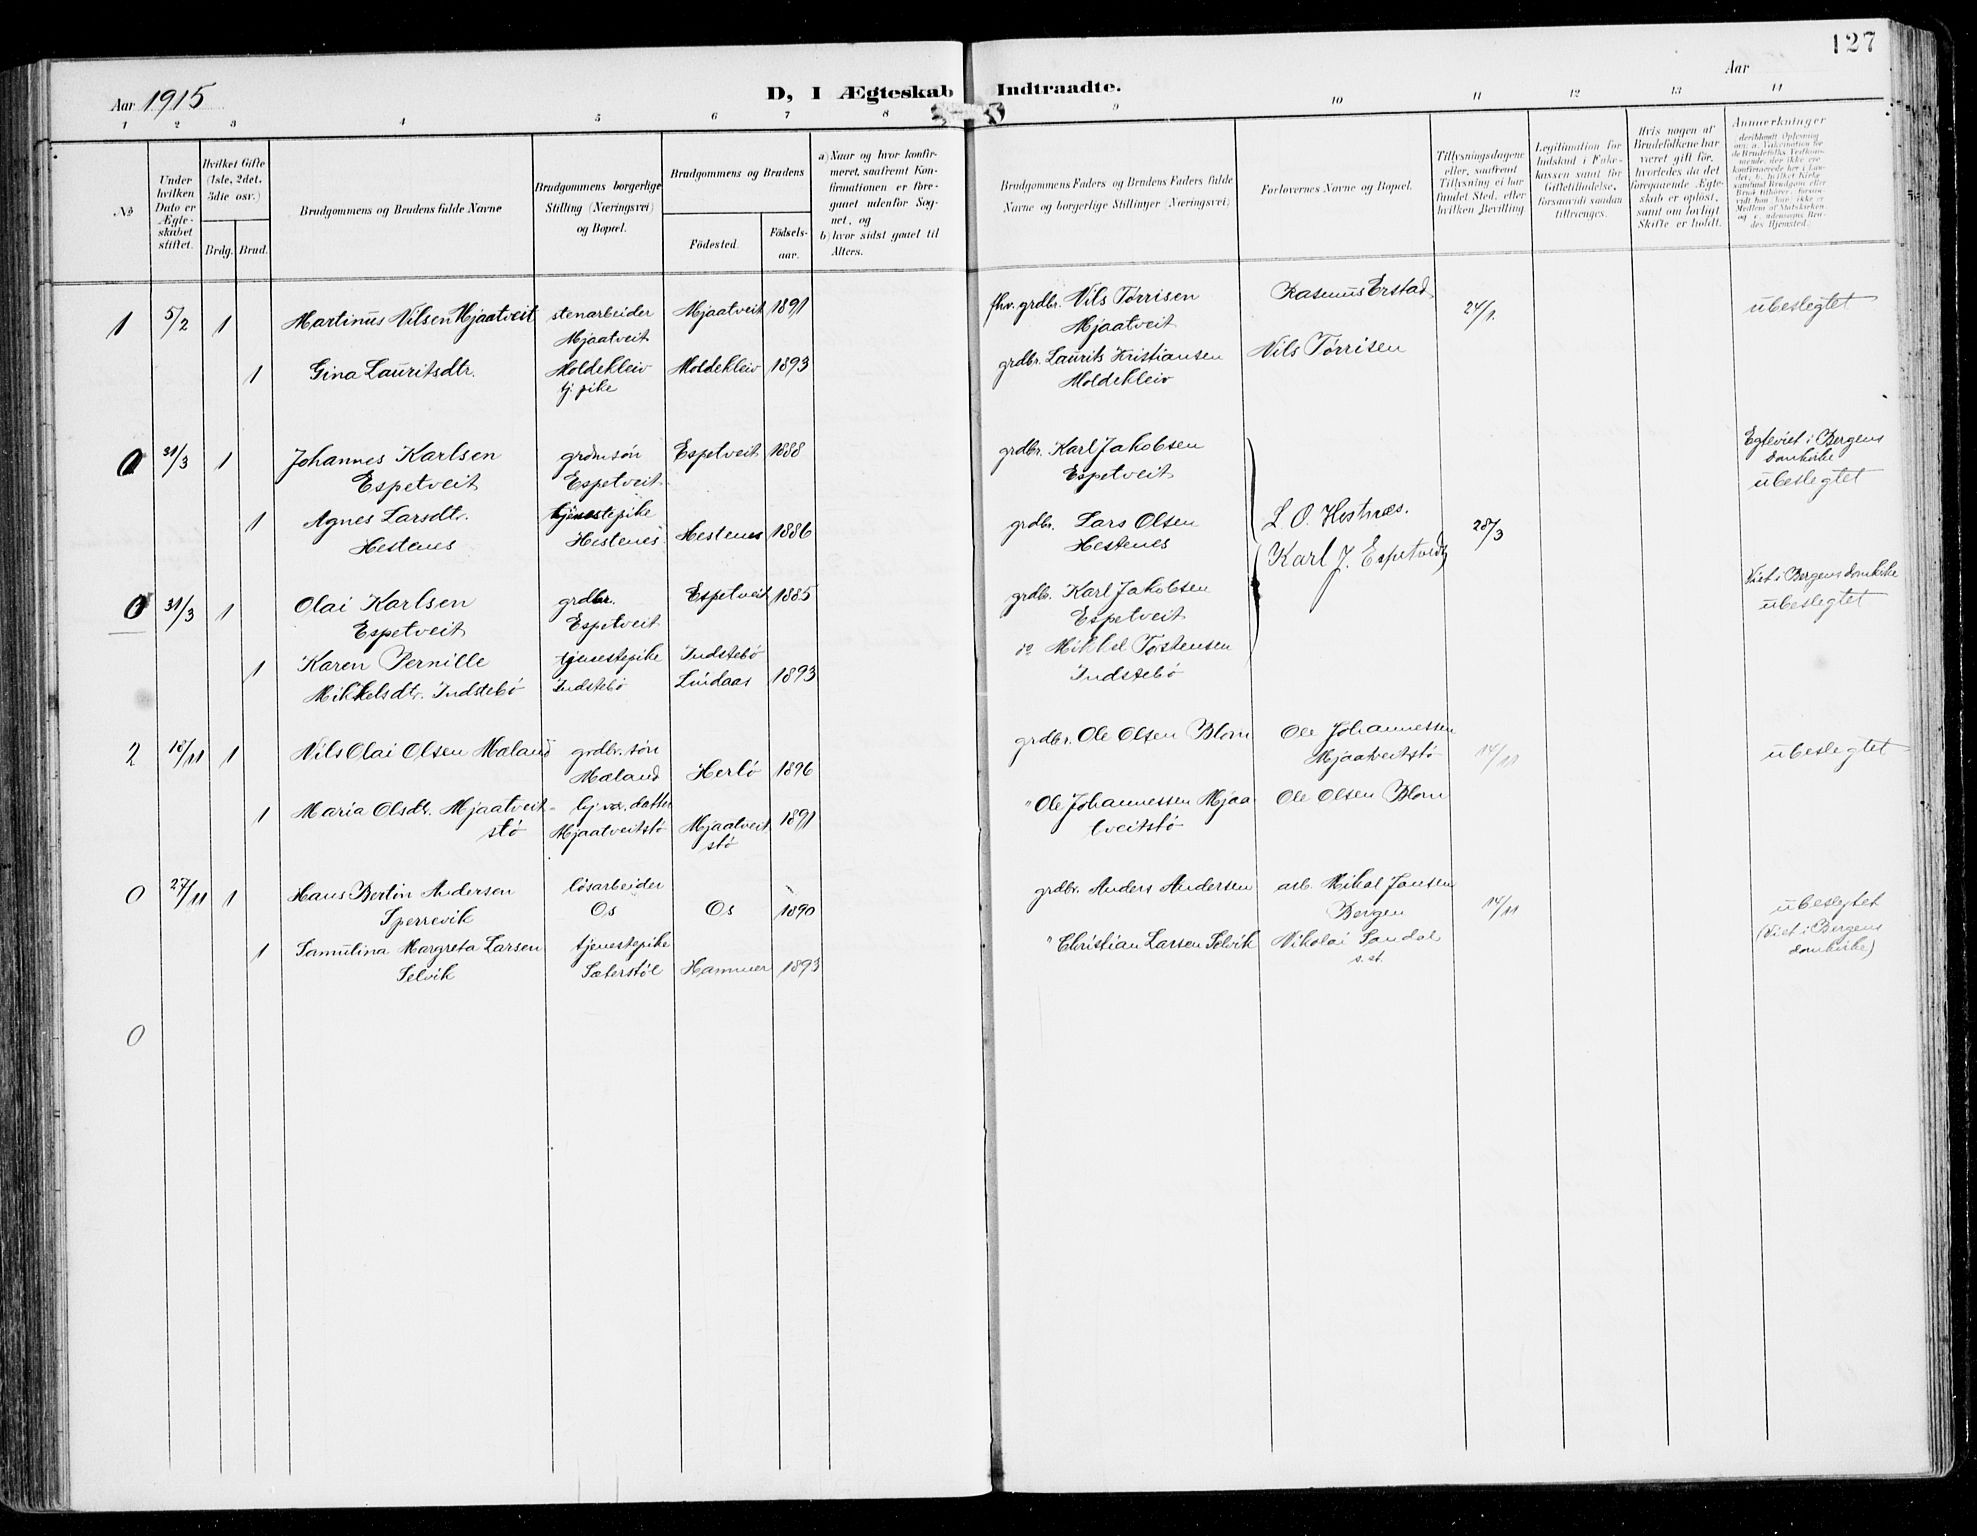 127
Aar 1915
D, I Ægteskab Indtraadte.
Aar
1 2 3 4 5 6 7 8 9 10 11 12 13 14
No
Under hvilken Dato er Ægteskabet stiftet.
Hvilket Gifte (1ste, 2det, 3die osv.)
Brdg. Brud.
Brudgommens og Brudens fulde Navne
Brudgommens borgerlige Stilling (Næringsvei) og Bopæl.
Brudgommens og Brudens
Födested.
Födselsaar.
a) Naar og hvor konfirmeret, saafremt Konfirmationen er foregaaet udenfor Sognet, og
b) hvor sidst gaaet til Alters.
Brudgommens Faders og Brudens Faders fulde Navne og borgerlige Stillinger (Næringsvei)
Forlovernes Navne og Bopæl.
Tillysningsdagene eller, saafremt Tillysning ei har fundet Sted, efter hvilken Bevilling
Legitimation for Indskud i Enkekassen samt for Giftetilladelse, forsaavidt saadan tiltrænges.
Hvis nogen af Brudefolkene har været gift för, hvorledes da det foregaaende Ægteskab er oplöst, samt om lovligt Skifte er holdt.
Anmærkninger
1 5/2 1 Martinus Nilsen Mjaatveit stenarbeider Mjaatveit 1891 fhv. grdbr. Nils Tørrisen Rasmus Erstad 24/1. ubeslegtet
Mjaatveit Mjaatveit
1 Gina Lauritsdtr. Moldekleiv Moldekleiv 1893 grdbr. Laurits Kristiansen Nils Tørrisen
tj. pike Moldekleiv
0 31/3 1 Johannes Karlsen grdmsøn Espetveit 1888 grdbr. Karl Jakobsen Egteviet i Bergens
Espetveit Espetveit Espetveit domkirke
ubeslegtet
1 Agnes Larsdtr. tjenestepike grdbr. Lars Olsen L. O. Hestnæs.
Hestenes Hestenes Hestenes 1886 Hestenes 28/3
Karl J. Espetvedt
0 31/3 1 Olai Karlsen grdbr. Espetveit 1885 grdbr. Karl Jakobsen Viet i Bergens domkirke
Espetveit Espetveit Espetveit ubeslegtet
1 Karen Pernille tjenestepike Indstebö do Mikkel Torstensen
Mikkelsdtr. Indstebö Indstebö Lindaas 1893 Indstebö
2 18/11 1 Nils Olai Olsen Mæland grdbr. søn grdbr. Ole Olsen Blom Ole Johannessen ubeslegtet
Mæland Herlö 1896 Mjaatveitstö 14/11
1 Maria Olsdtr. Mjaatveit- datter " Ole Johannessen Mjaa Ole Olsen Blom
stö Mjaatveitstö Mjaatveit 1891 tveitstö
stö
0 27/11 1 Hans Bertin Andersen løsarbeider grdbr. Anders Andersen arb. Mikal Jansen
Sperrevik Os Os 1890 Bergen 14/11 ubeslegtet
1 Samulina Margreta Larsen tjenestepike " Christian Larsen Selvik Nikolai Sandal (Viet i Bergens
Selvik Sæterstöl Hammer 1893 s. st. domkirke)
0